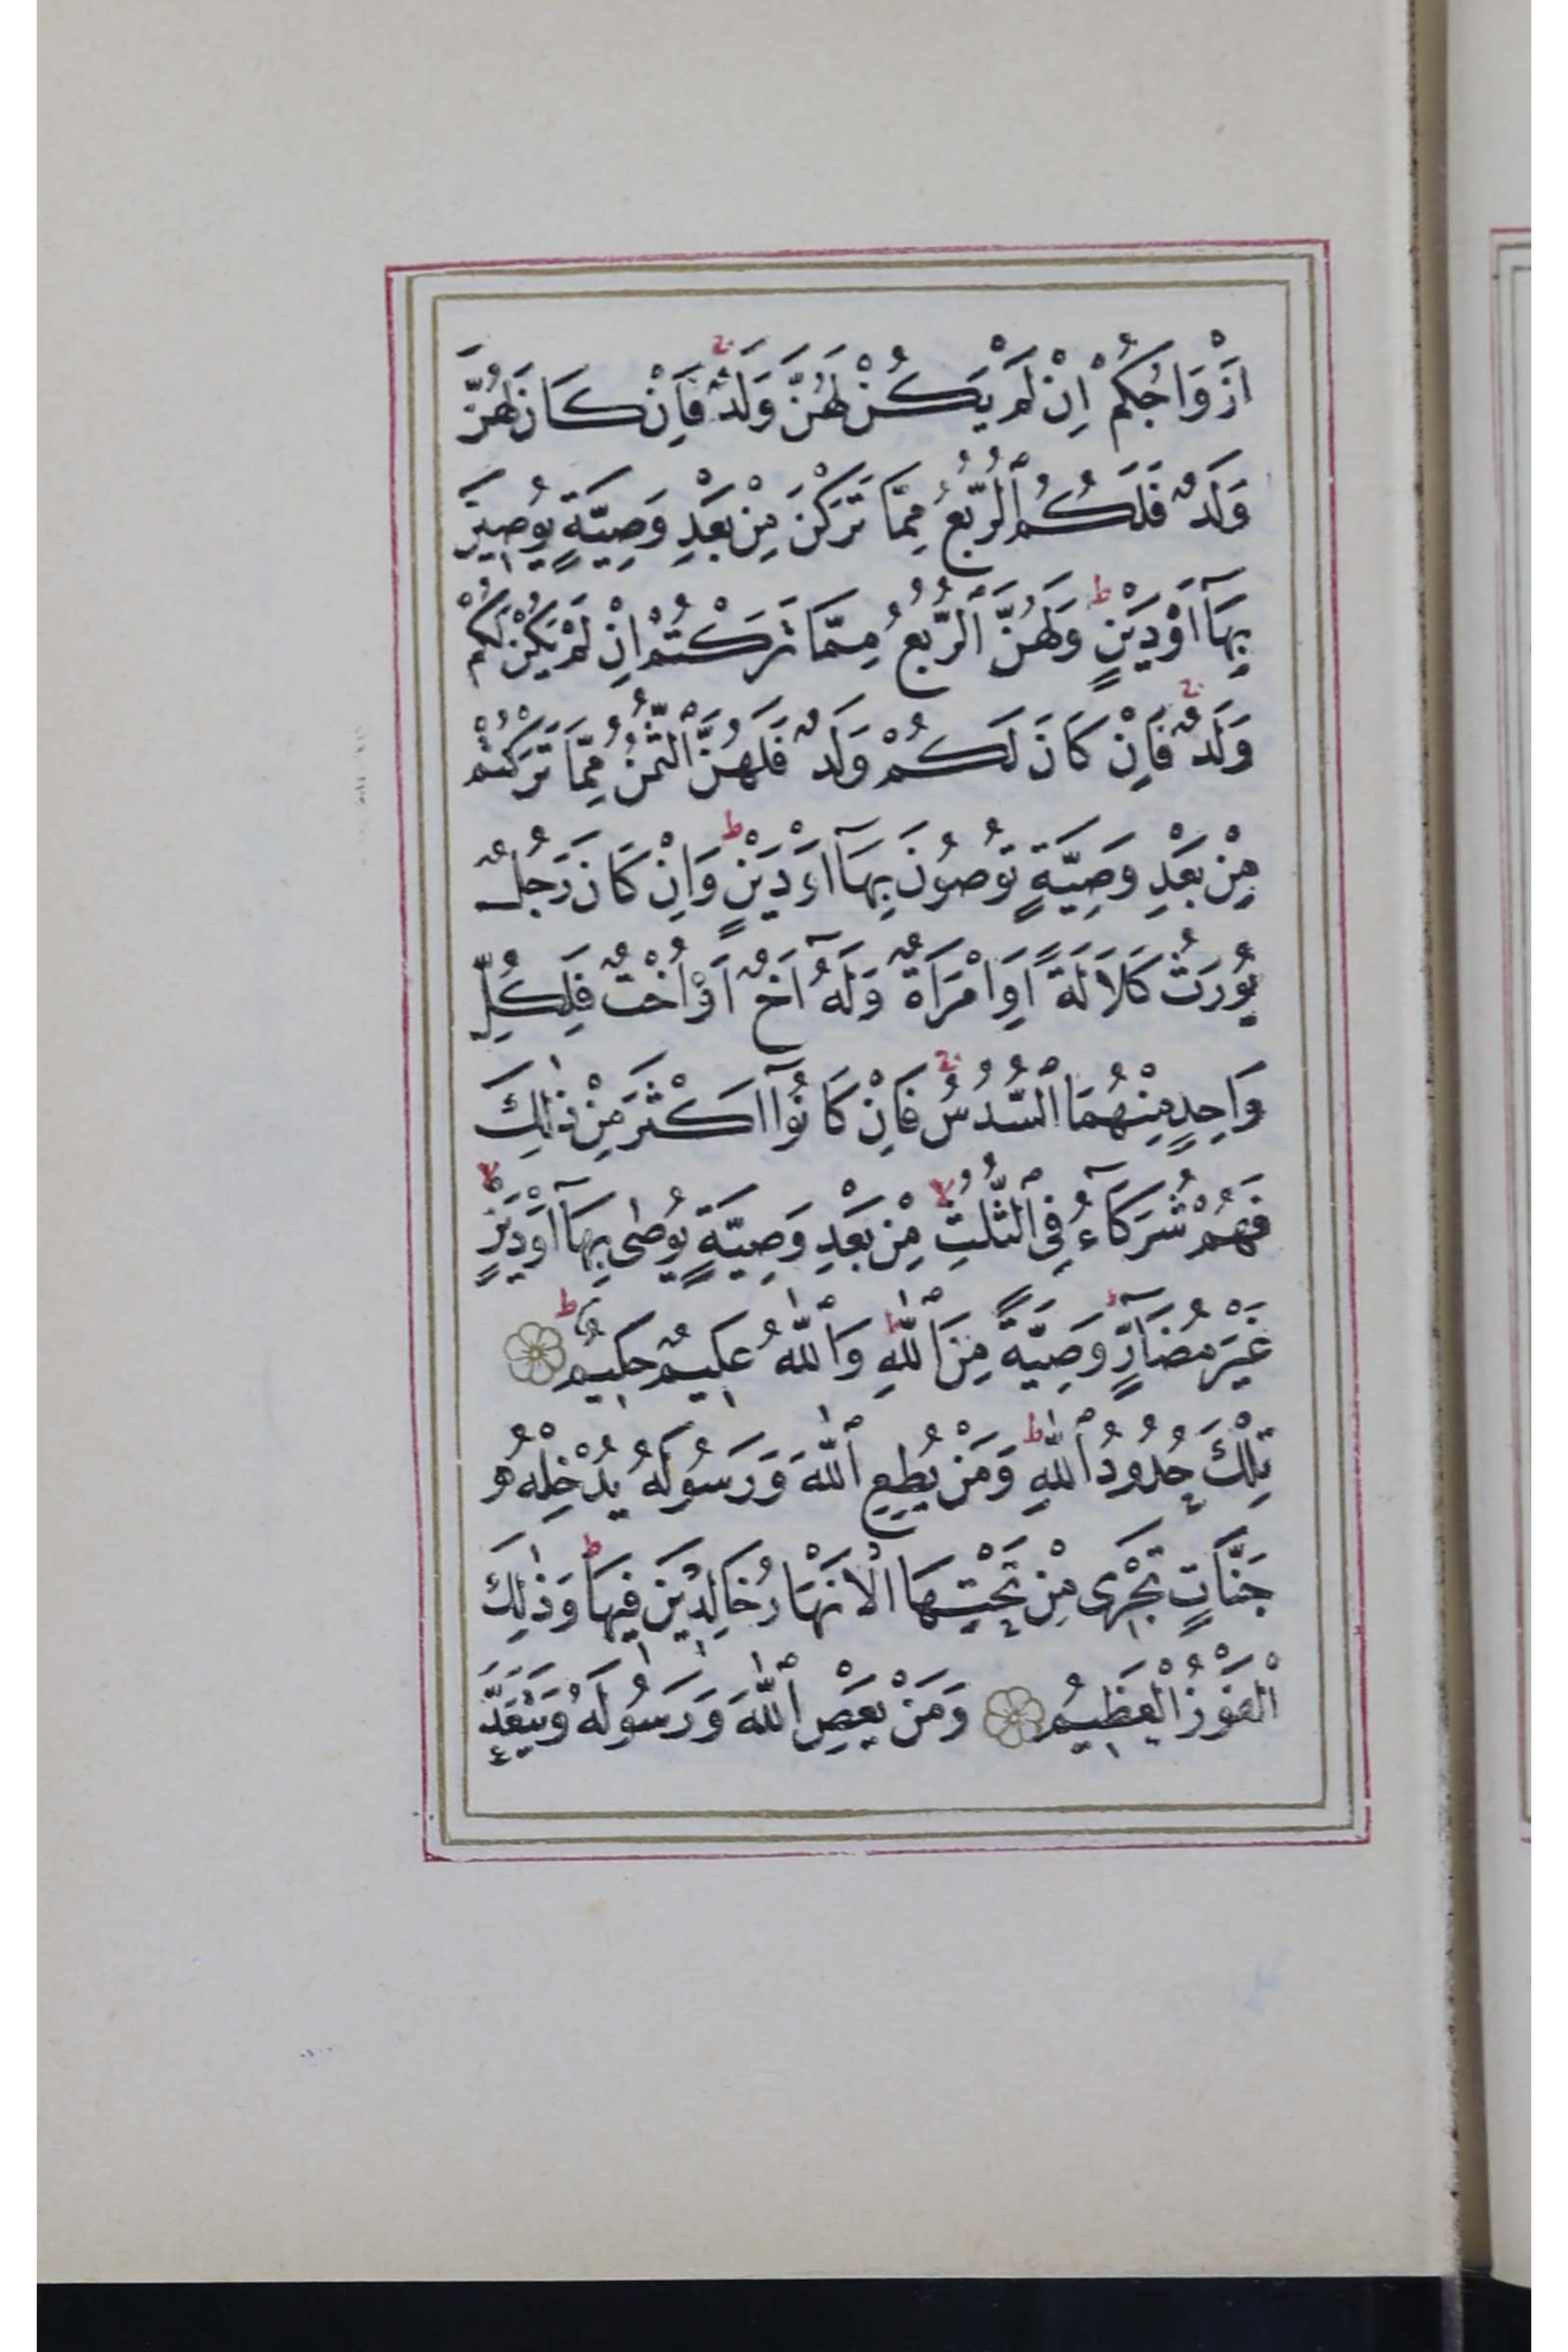 اَزْوَاجُكُمْ اِنْ لَمْ يَكُنْ لَهُنَّ وَلَدٌ فَاِنْ كَانَ لَهُنَّ
وَلَدٌ فَلَكُمُ ٱلرُّبُعُ مِمَّا تَرَكْنَ مِنْ بَعْدِ وَصِيَّةٍ يُوصِينَ
بِهَآ اَوْ دَيْنٍ وَلَهُنَّ ٱلرُّبُعُ مِمَّا تَرَكْتُمْ اِنْ لَمْ يَكُنْ لَكُمْ
وَلَدٌ فَاِنْ كَانَ لَكُمْ وَلَدٌ فَلَهُنَّ ٱلثُّمُنُ مِمَّا تَرَكْتُمْ
مِنْ بَعْدِ وَصِيَّةٍ تُوصُونَ بِهَآ اَوْ دَيْنٍ وَاِنْ كَانَ رَجُلٌ
يُورَثُ كَلَالَةً اَوِ امْرَاَةٌ وَلَهُٓ اَخٌ اَوْ اُخْتٌ فَلِكُلِّ
وَاحِدٍ مِنْهُمَا ٱلسُّدُسُ فَاِنْ كَانُوٓا اَكْثَرَ مِنْ ذٰلِكَ
فَهُمْ شُرَكَآءُ فِى ٱلثُّلُثِ مِنْ بَعْدِ وَصِيَّةٍ يُوصٰى بِهَآ اَوْ دَيْنٍ
غَيْرَ مُضَآرٍّ وَصِيَّةً مِنَ ٱللّٰهِ وَٱللّٰهُ عَلِيمٌ حَلِيمٌ
تِلْكَ حُدُودُ ٱللّٰهِ وَمَنْ يُطِعِ ٱللّٰهَ وَرَسُولَهُ يُدْخِلْهُ
جَنَّاتٍ تَجْرِى مِنْ تَحْتِهَا الْاَنْهَارُ خَالِدِينَ فِيهَا وَذٰلِكَ
الْفَوْزُ الْعَظِيمُ وَمَنْ يَعْصِ ٱللّٰهَ وَرَسُولَهُ وَيَتَعَدَّ